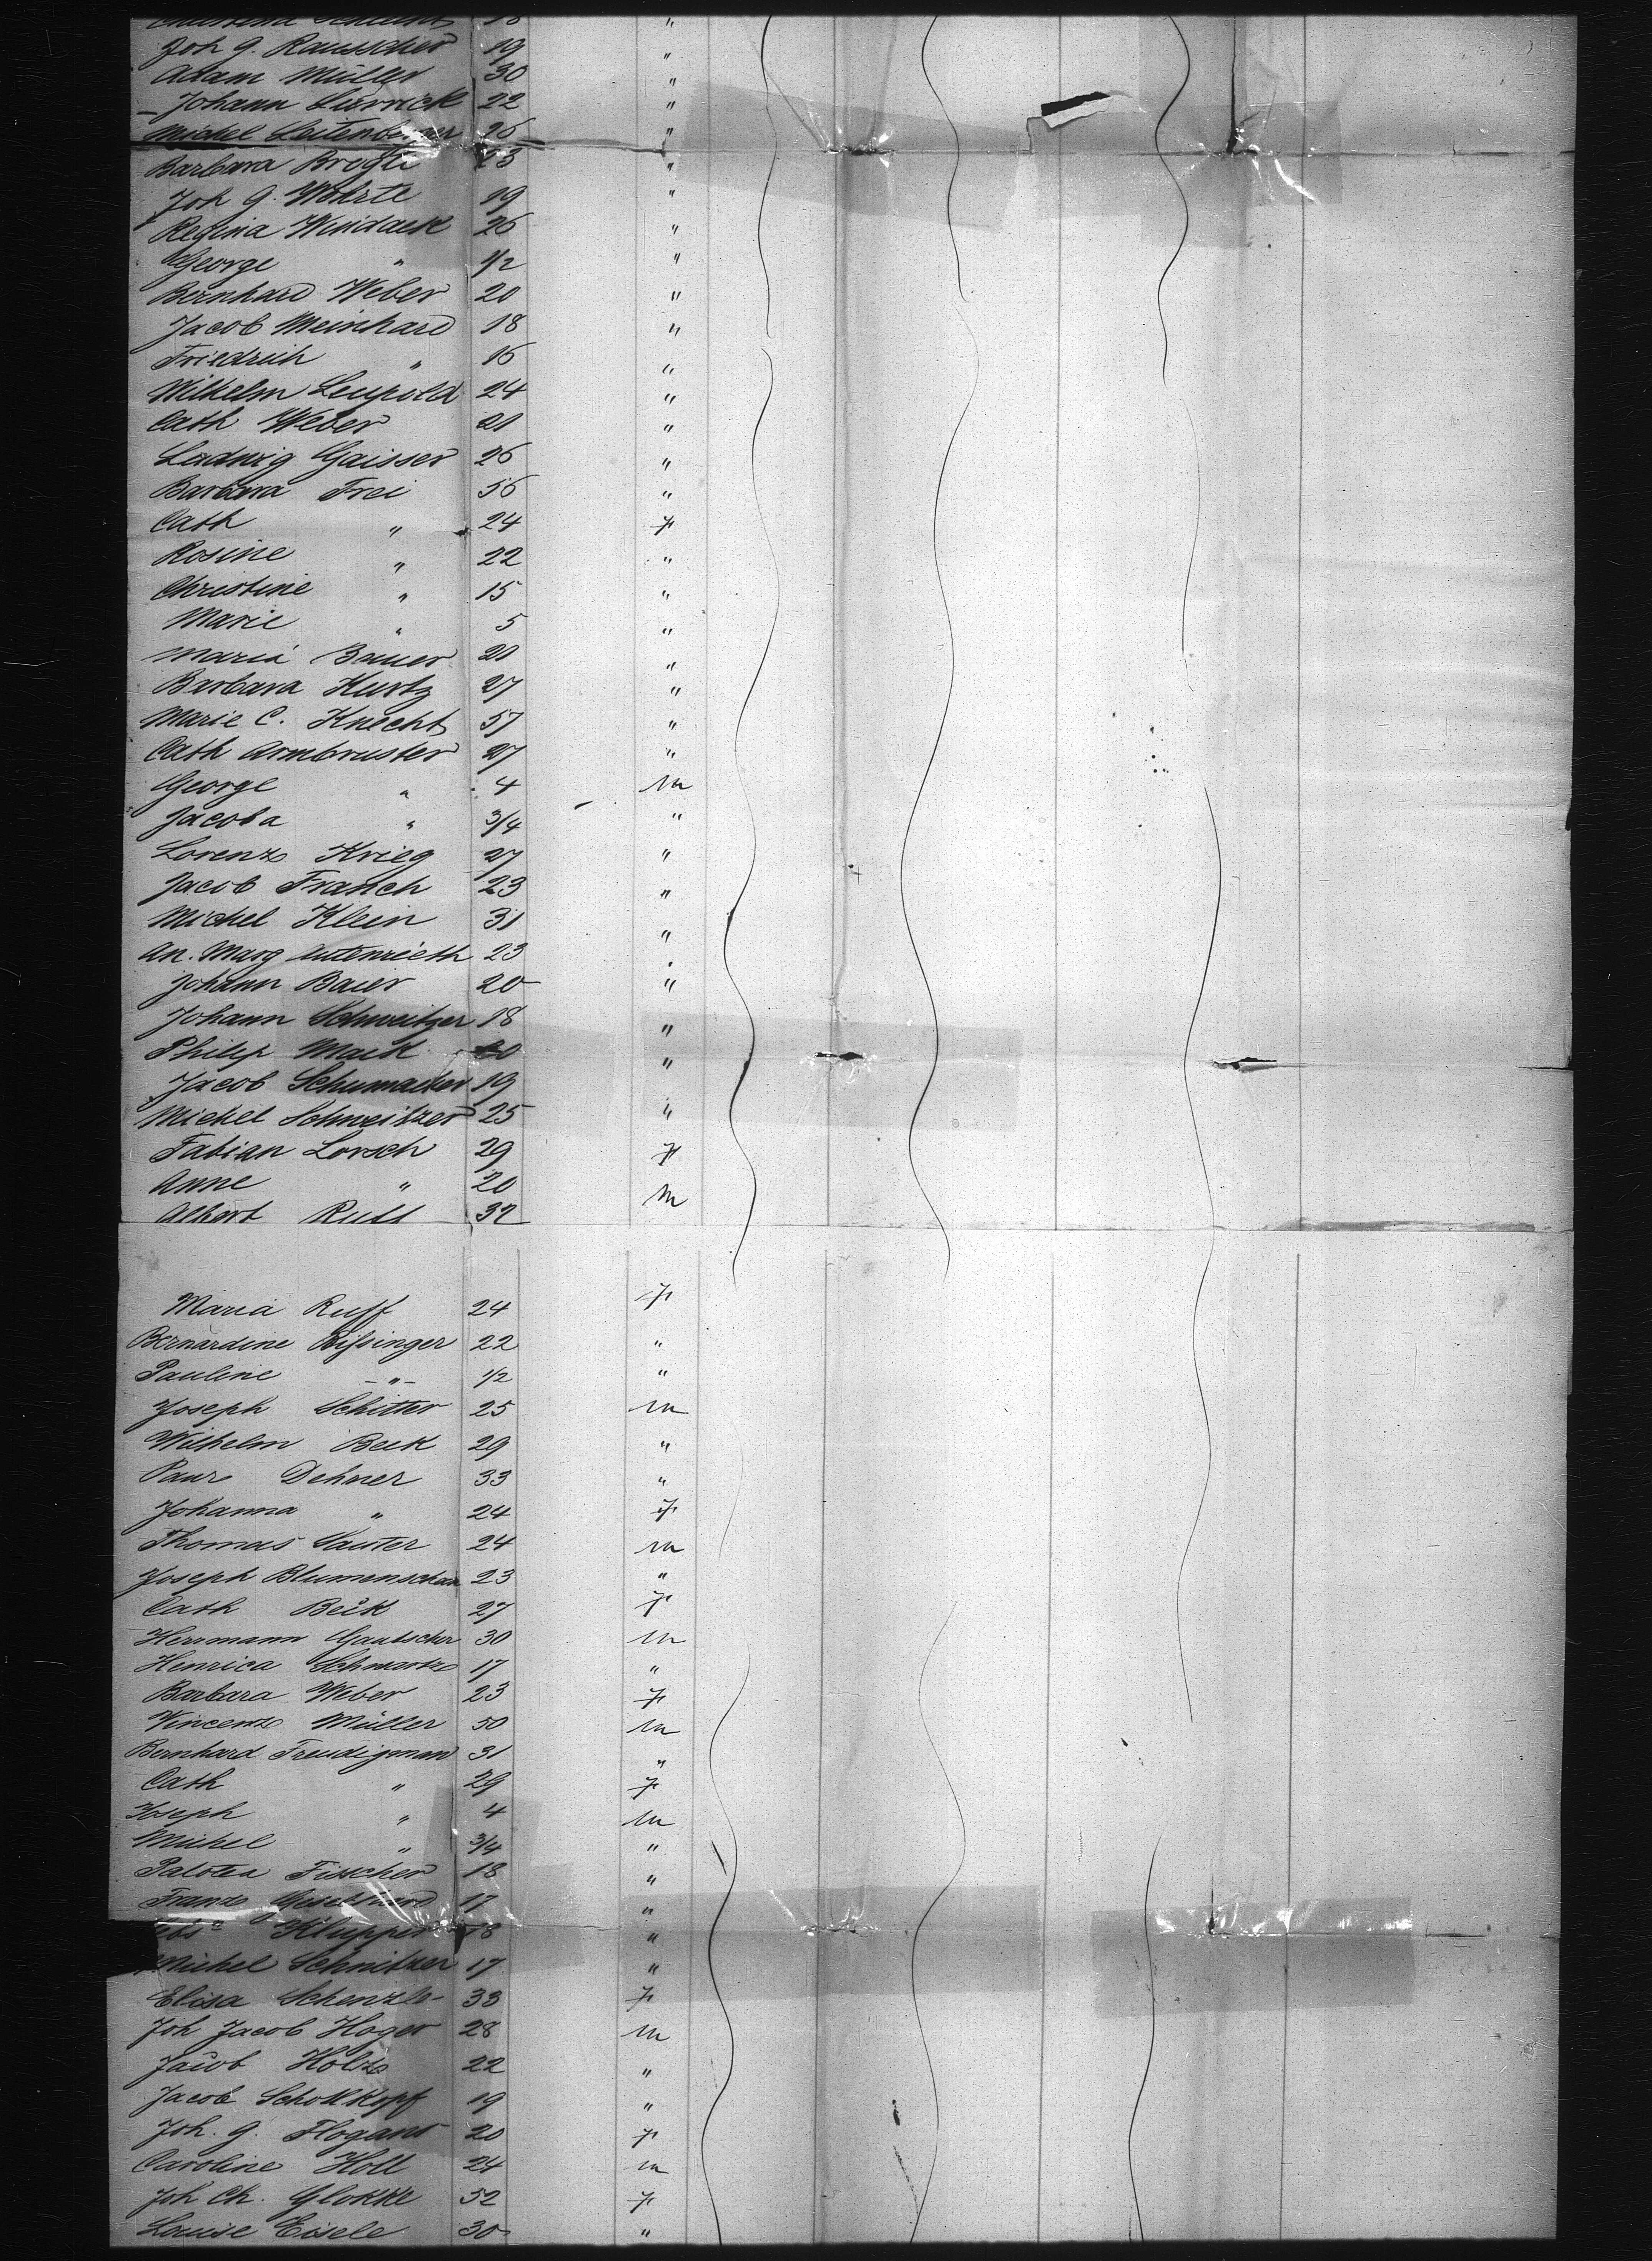 18 "
Joh G. Rauscher 19 "
Adam Müller 30 "
Johann 22 "
Michel Leitenberger 26 "
Barbara 23 "
Joh G. Wöhrle 19 "
Regina 26 "
George " 1/2 "
Bernhard Weber 20 "
Jacob Meinhard 18 "
Friedrich " 16 "
Wilhelm Leupold 24 "
Cath Weber 21 "
Ludwig Gaisser 26 "
Barbara Frei 56 "
Cath " 24 f
Rosine " 22 "
Christine " 15 "
Marie " 5 "
Maria Bauer 21 "
Barbara Kurtz 27 "
Marie C. Knecht 57 "
Cath Armbruster 27 "
George " 4 m
Jacoba " 3/4 "
Lorenz Krieg 27 "
Jacob Franch 23 "
Michel Klein 31 "
An. Marg Autenrieth 23 "
Johann Baier 20 "
Johann Schweitzer 18 "
Philip Mack "
Jacob Schumacher 19 "
Michel Schweitzer 25 "
Fabian Lorsch 29 f
Anne " 20 m
Albert Ruff 32
Maria Ruff 24 f
Bernardine Rissinger 22 "
Pauline -"- 1/2 "
Joseph Schitter 25 m
Wilhelm Beck 29 "
Paul Dehner 33 "
Johanna " 24 f
Thomas Sauter 24 m
Joseph Blumenschein 23 "
Cath Beck 27 f
Herrmann Gautscher 30 m
Henrica Schwartz 17 "
Barbara Weber 23 f
Vincenz Müller 50 m
Bernhard Freudigman 31 "
Cath " 29 f
Joseph " 4 m
Michel " 3/4 "
Fischer 18 "
Franz 17 "
Klupper 18 "
Michel Schnitzer 17 "
Elisa Schenzle 33 f
Joh Jacob Hager 28 m
Jacob Holz 22 "
Jacob Schollkopf 19 "
Joh. G. 20 f
Caroline Holl 24 m
Joh Ch. Glokke 52 f
Louise Eisele 30 "